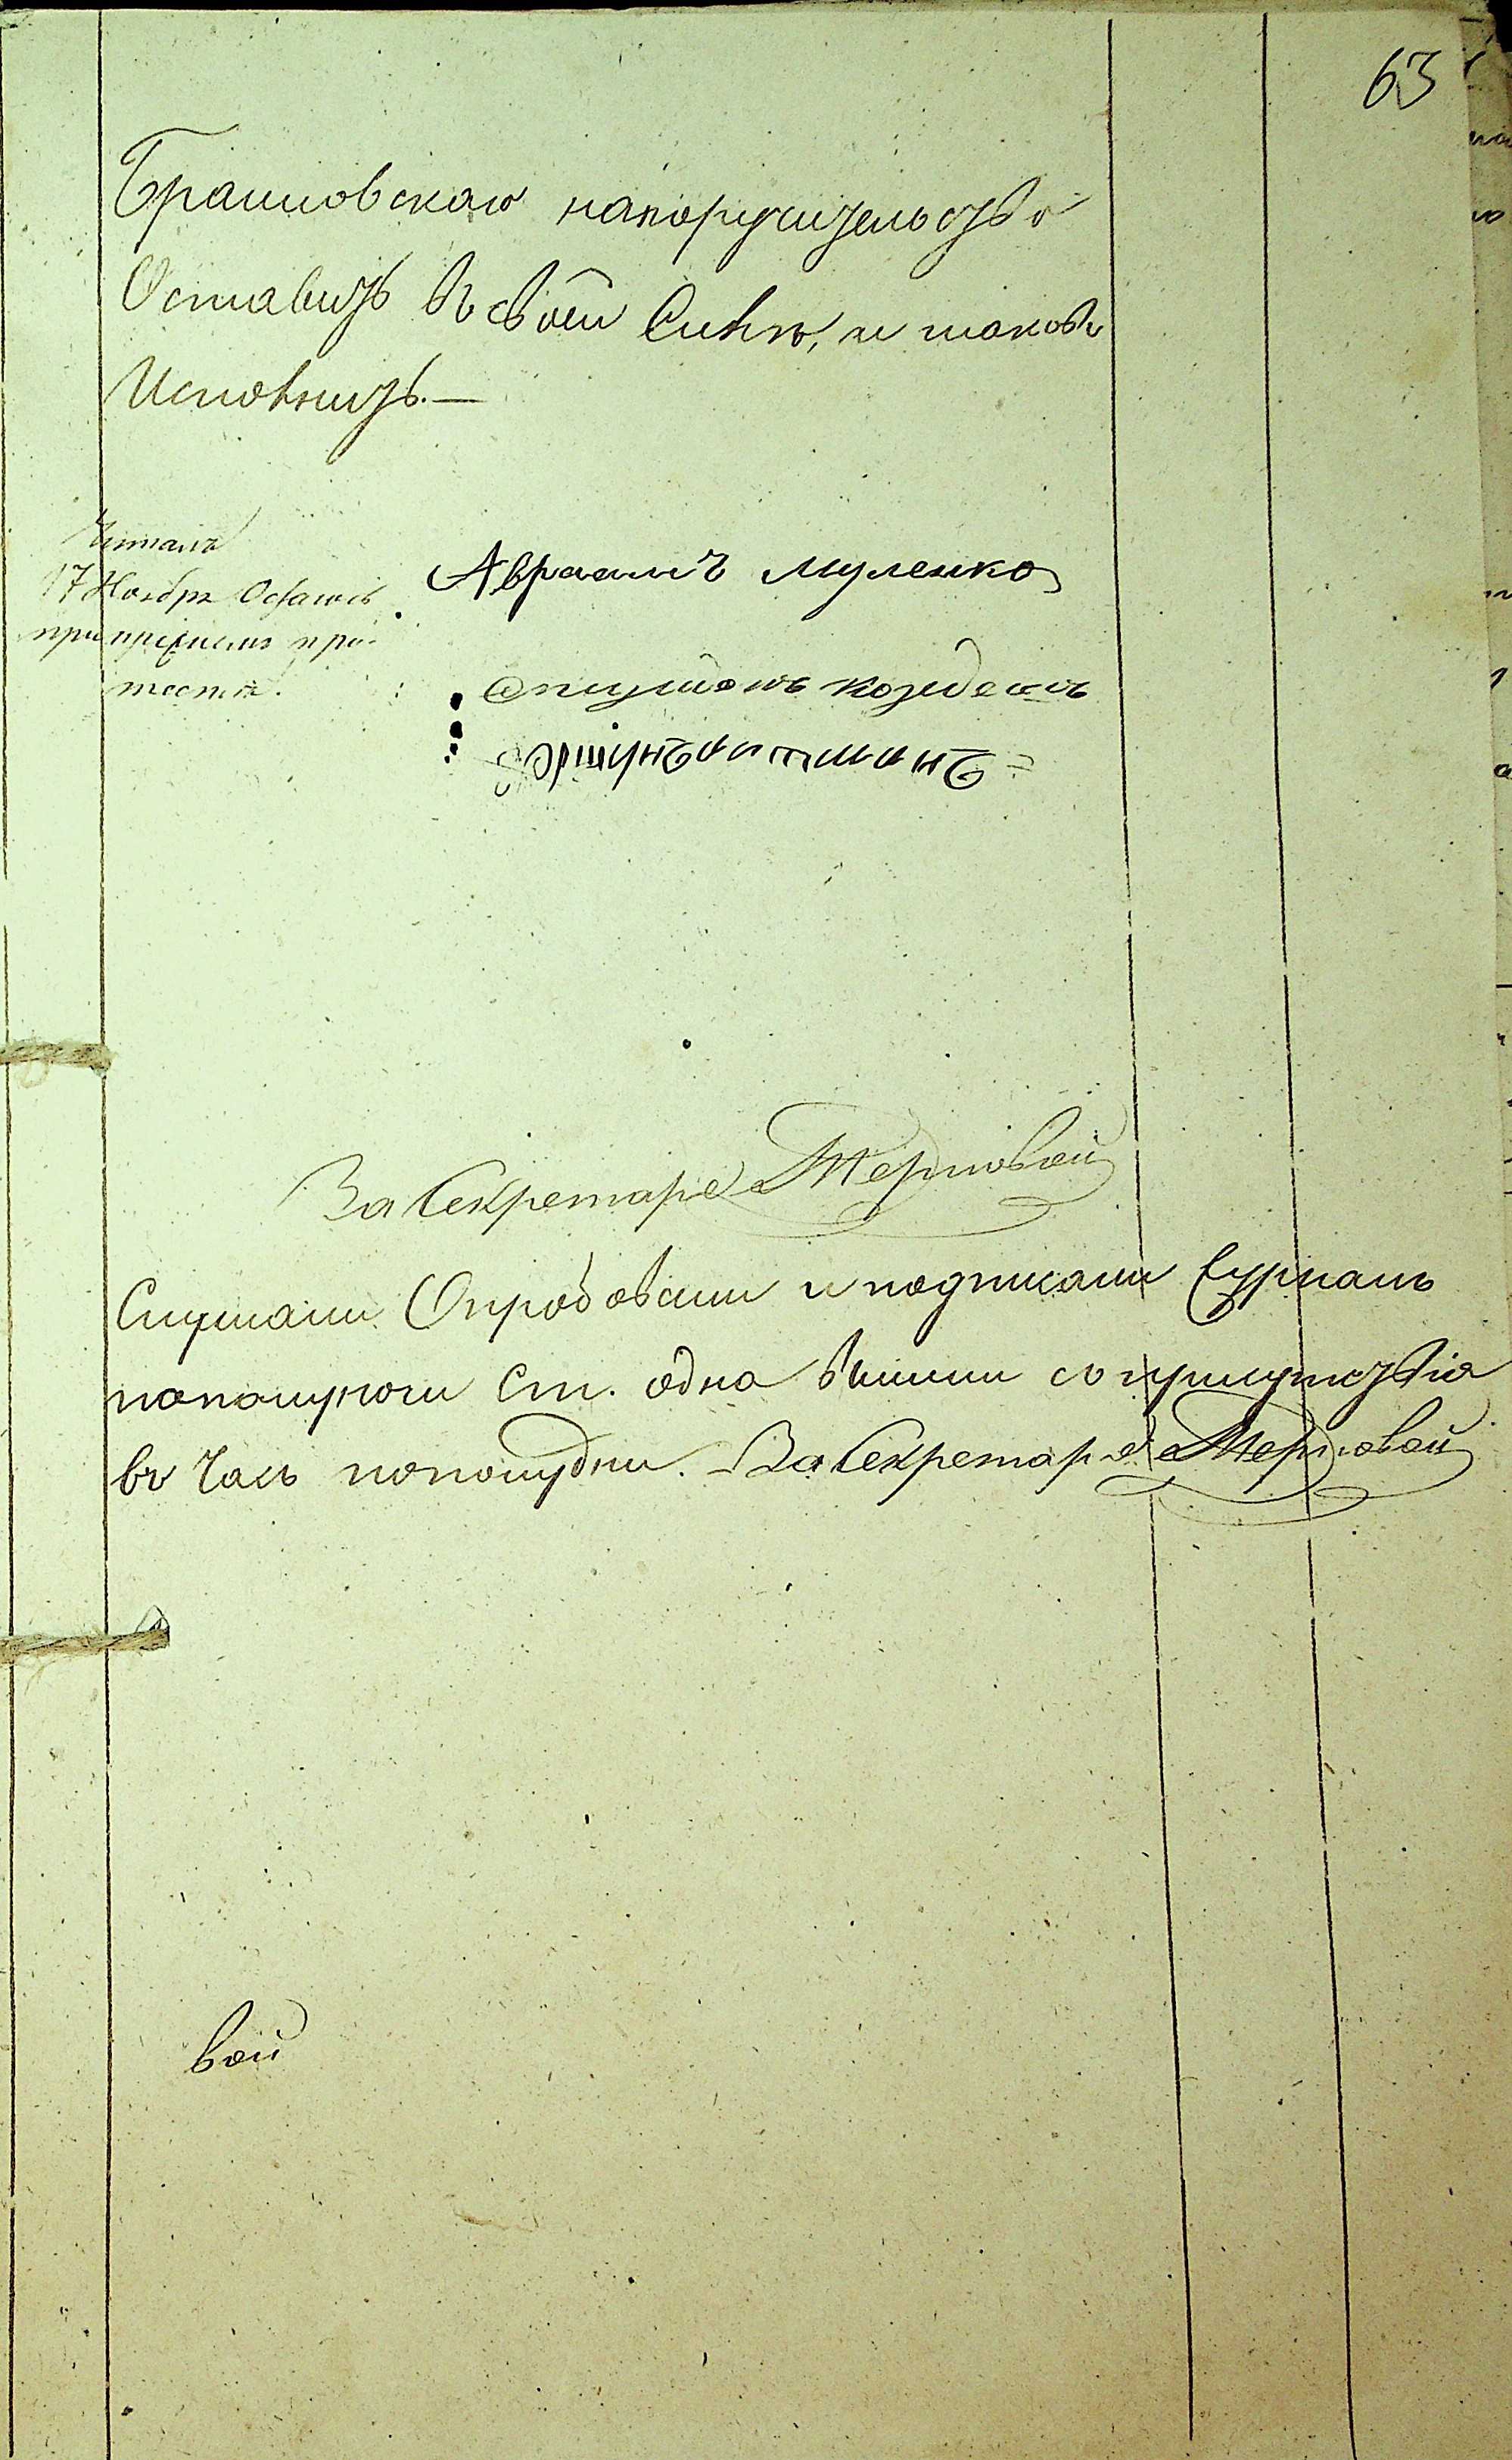 63
Браиловскаго напоручительство
Оставить въ своей Силѣ, и таковой
Исполнить. —
Читалъ
17 Ноября Остаюсь
при прежнемъ про-
тестѣ.
Авраамъ Муленко
За Секретаря Терновой
Слушали Опробовали и подписали Журналъ
пополуночи Ст. одна вышли съ присутствія
въ Часъ пополудни. За Секретаря Терновой
вой